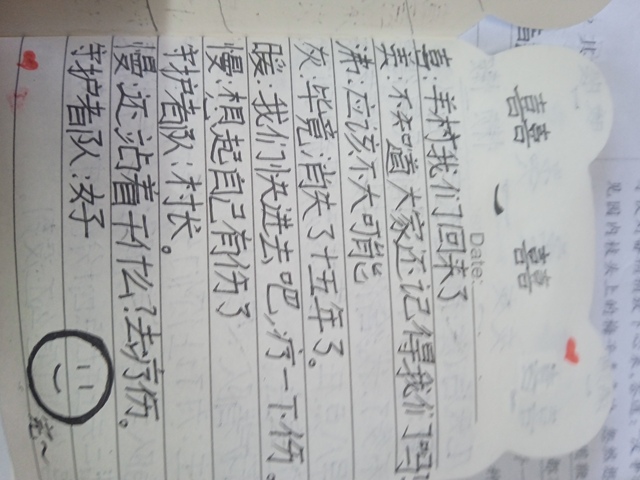 囍
囍
Date:
喜:羊村,我们回来了
真:不知道大家还记得我们吗
沸:应该不大可能
灰:毕竟消失了十五年了。
暖:我们快进去吧,疗一下伤。
慢:想起自己有伤了
守护者队:村长。
慢:还站着干什么?去疗伤。
守护者队:好
完~